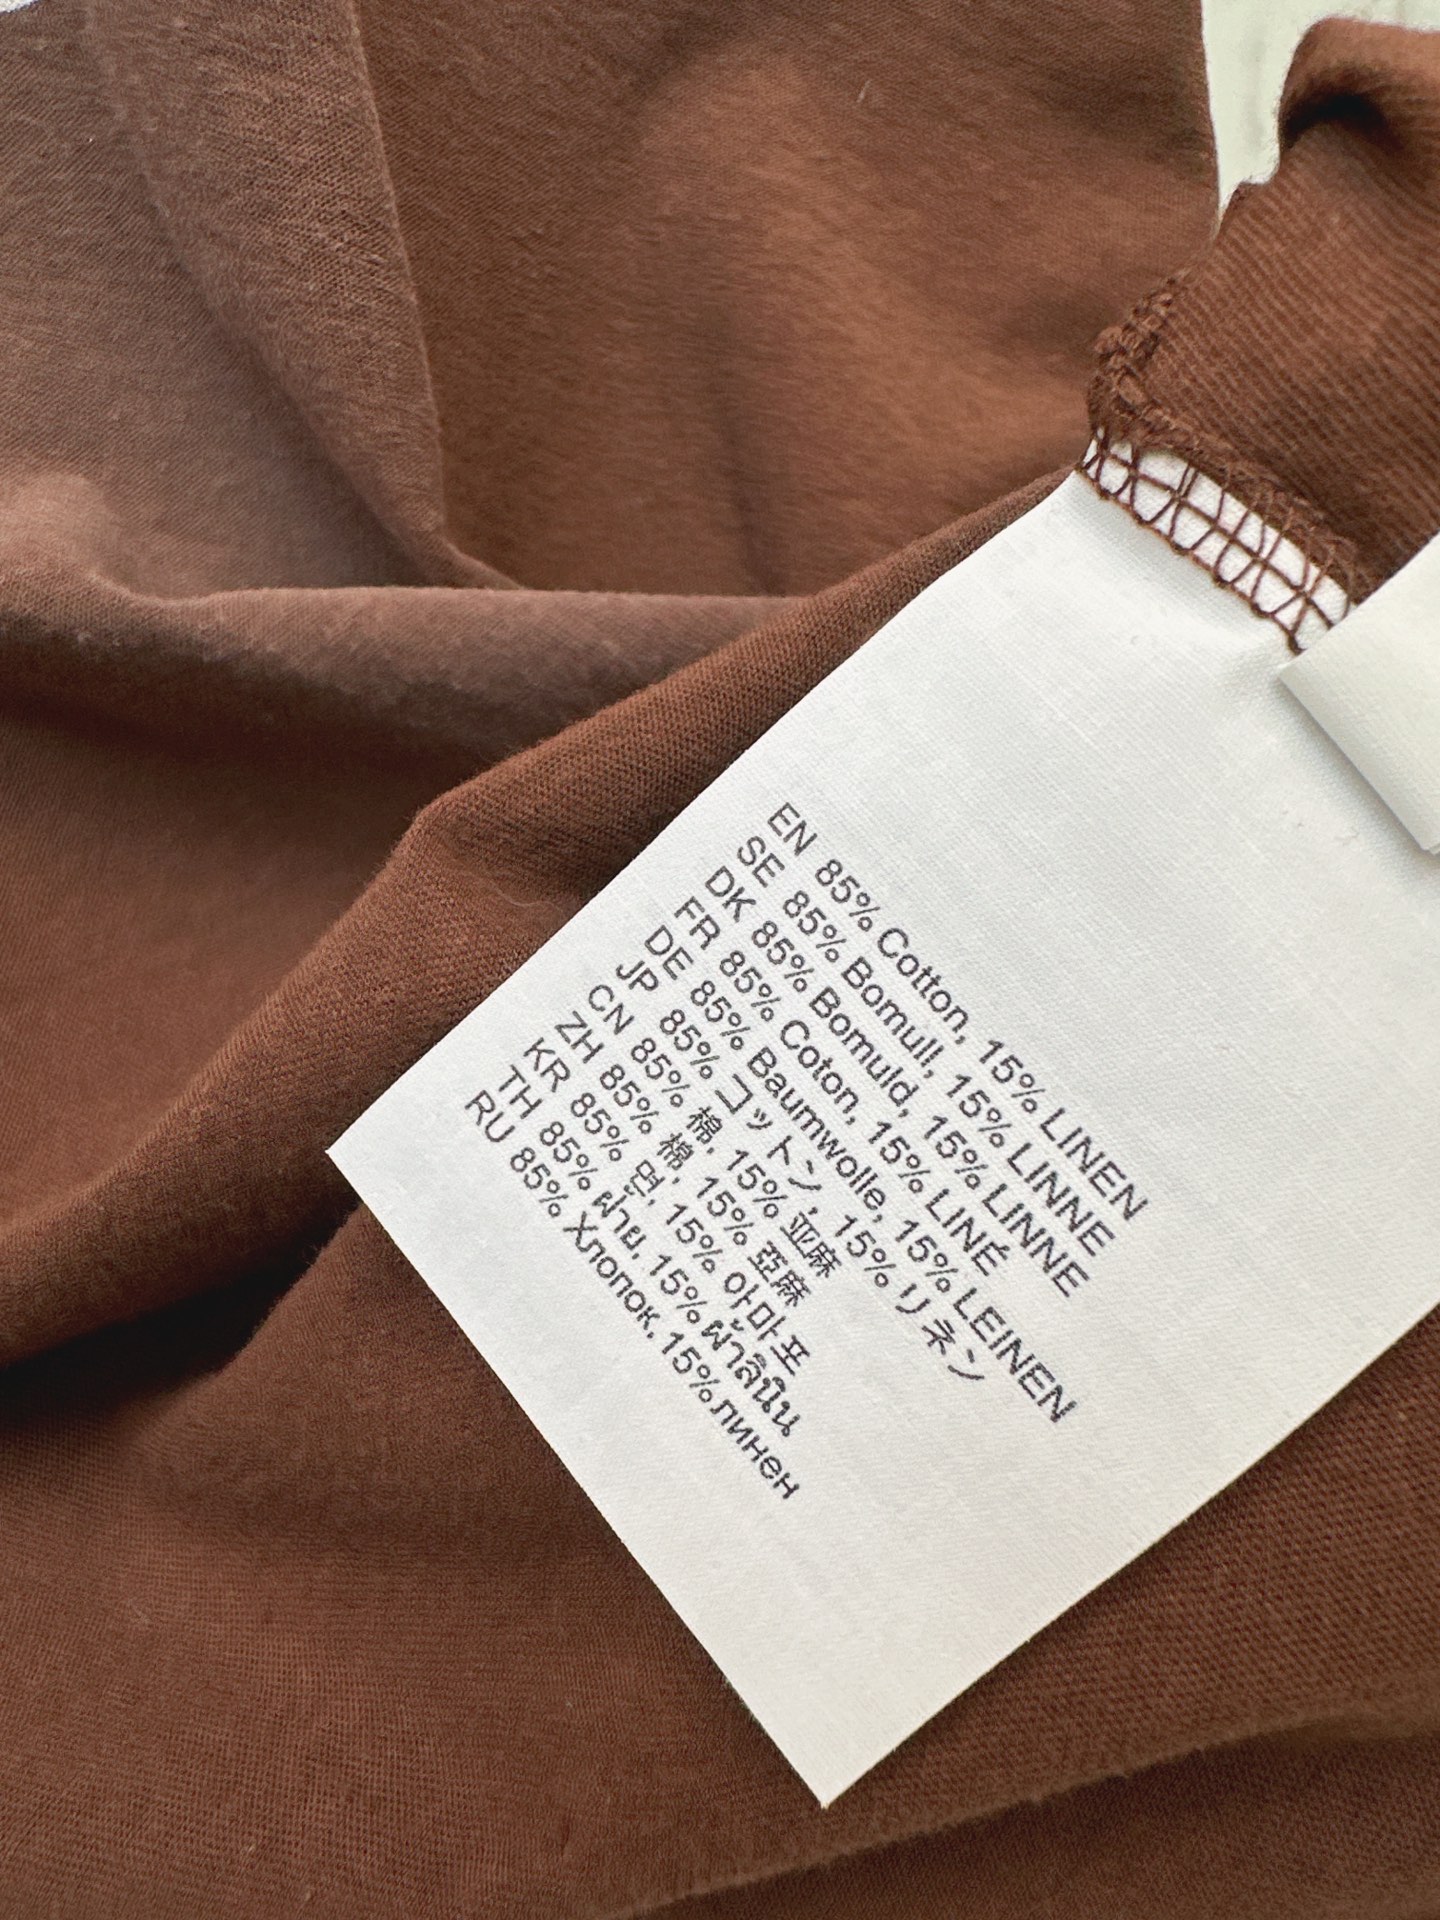 EN 85% Cotton, 15% LINEN
SE 85% Bomull, 15% LINNE
DK 85% Bomuld, 15% LINNE
FR 85% Coton, 15% LINÉ
DE 85% Baumwolle, 15% LEINEN
JP 85% コットン, 15% リネン
CN 85% 棉, 15% 亚麻
ZH 85% 棉, 15% 亞麻
KR 85% 면, 15% 아마포
TH 85% ฝ้าย, 15% ผ้าลินิน
RU 85% Хлопок, 15% линен